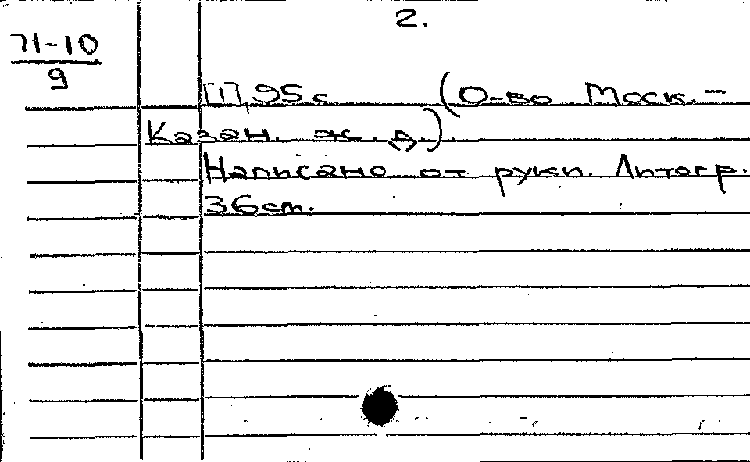 2.
71-10
9
[1], 95 с. (О-во Моск.-
Казан. ж. д.)
Написано от руки. Литогр.
36 см.